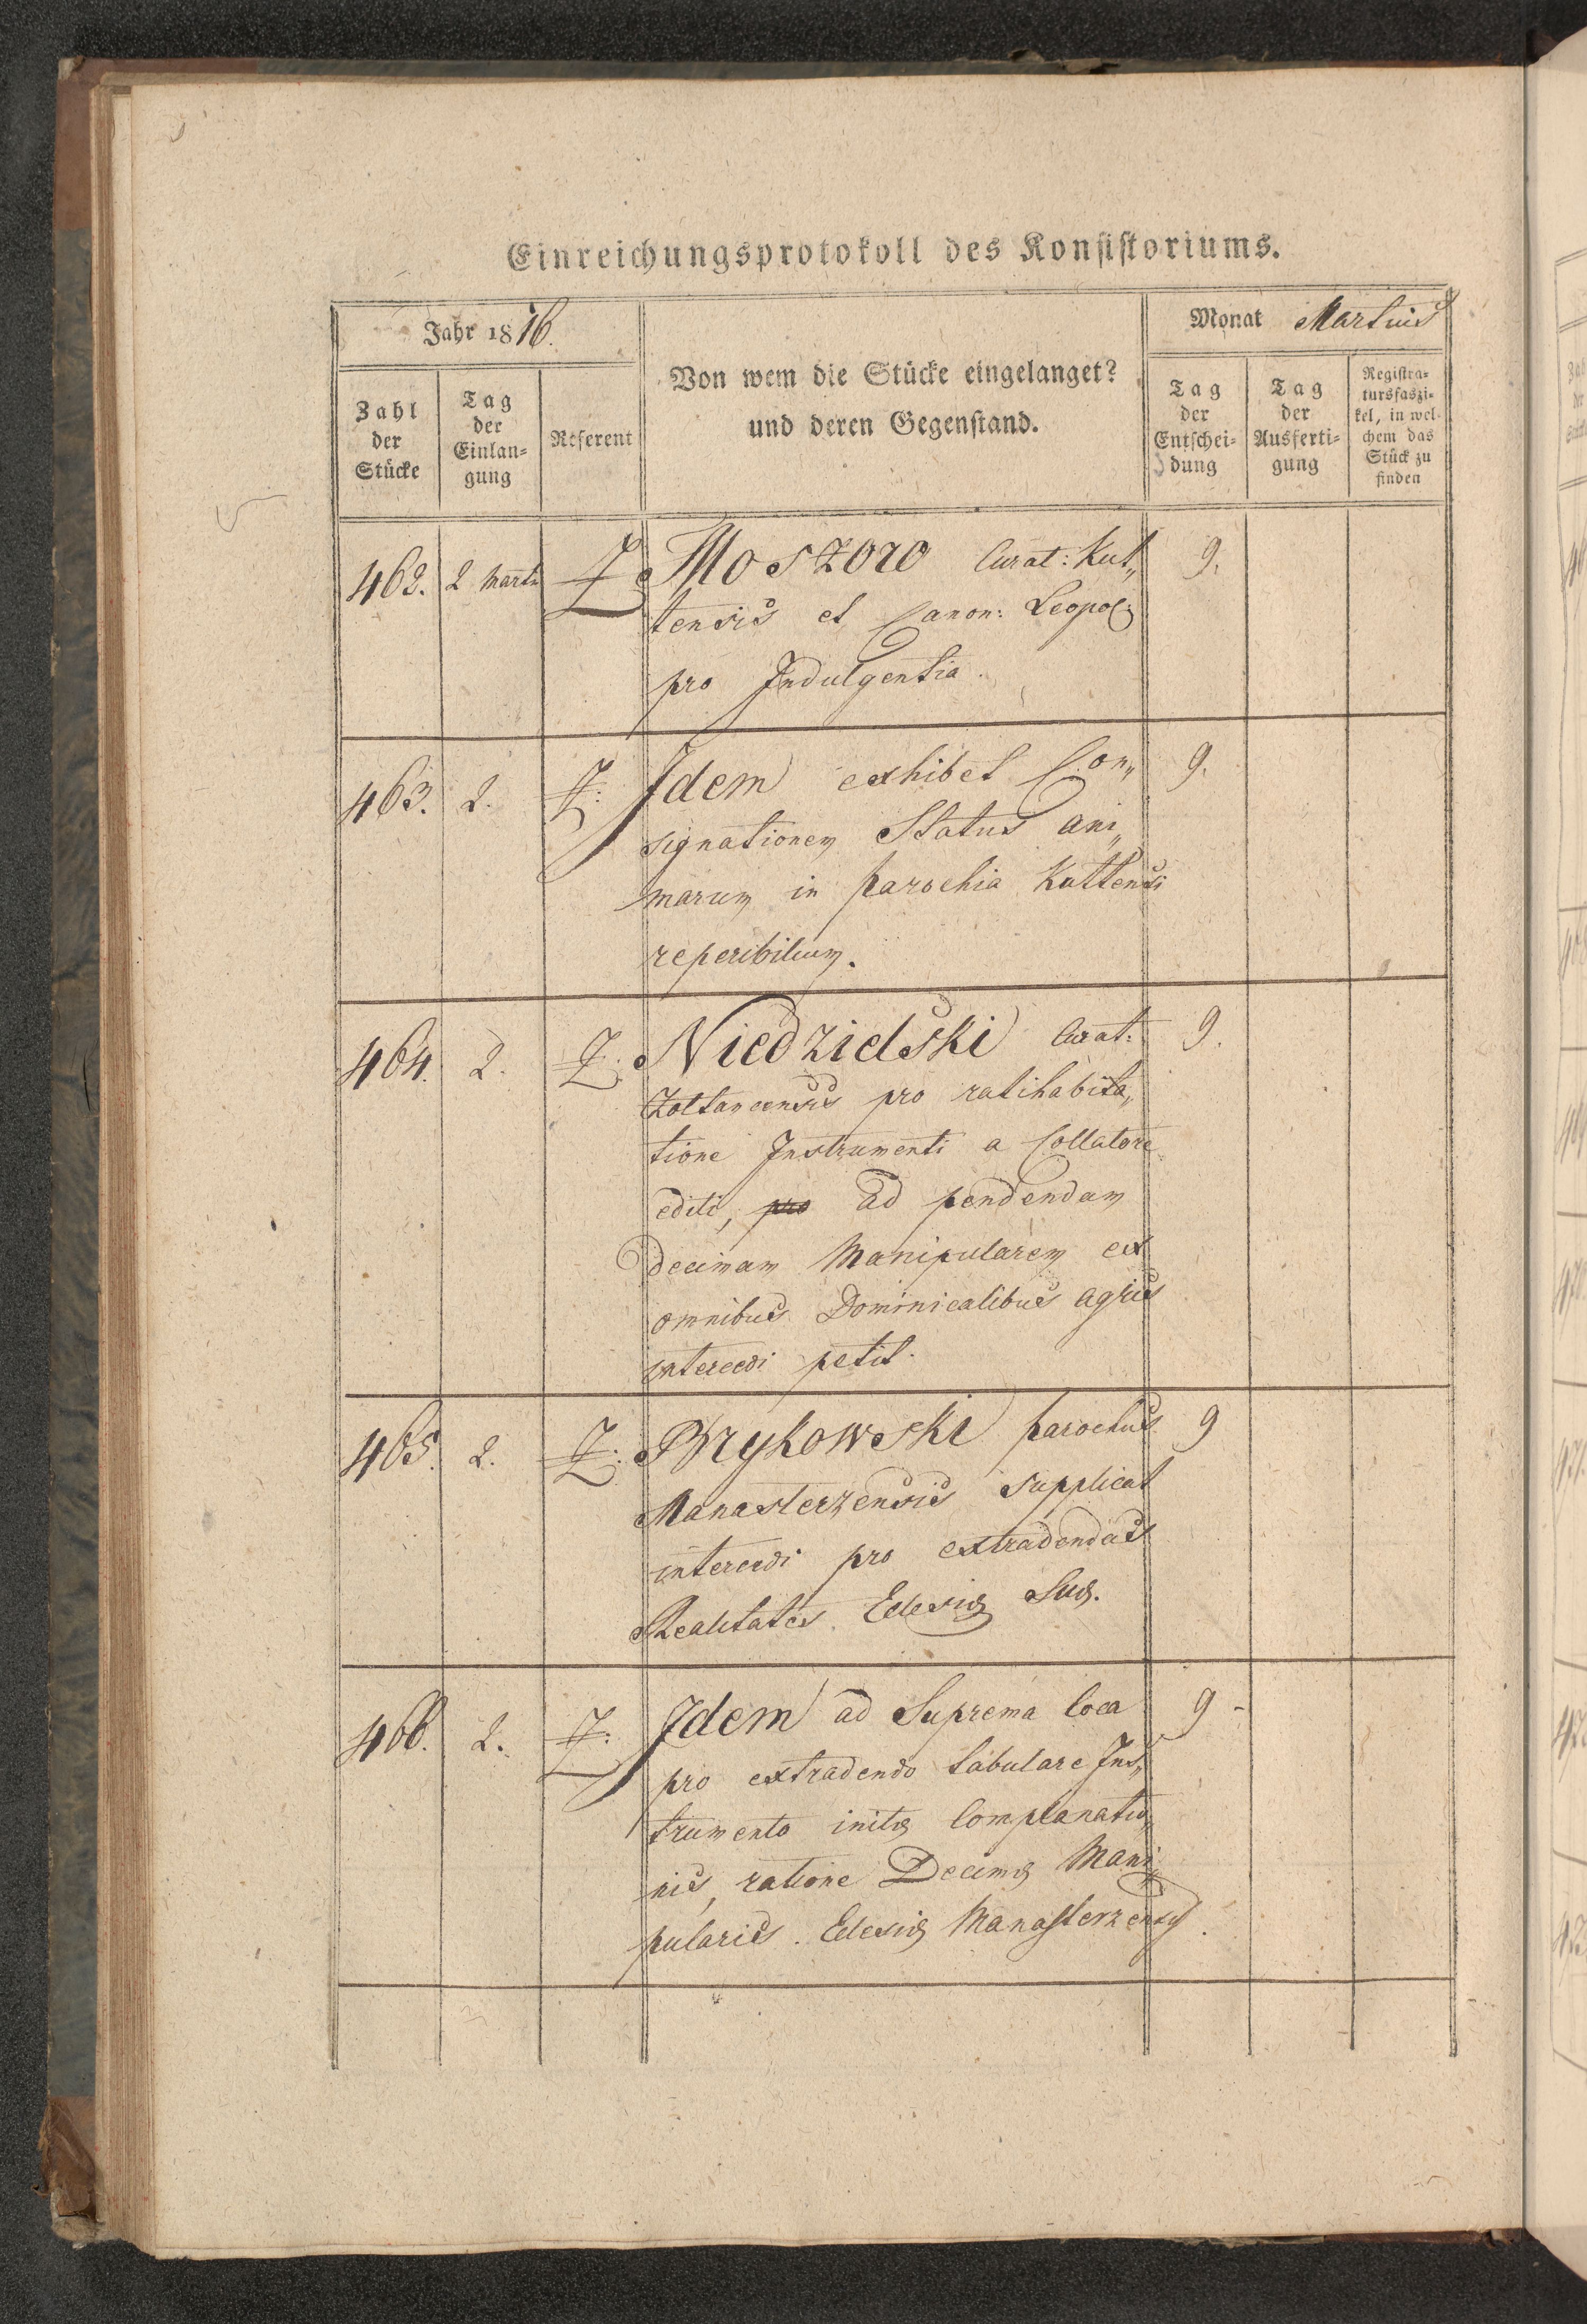 Einreichungsprotokoll des Konsistoriums.
Jahr 1816.
Von wem die Stücke eingelanget?
und deren Gegenstand.
Monat Martius
Zahl
der
Stücke
Tag
der
Einlan=
gung
Referent
Tag
der
Entschei=
dung
Tag
der
Ausferti=
gung
Registra=
tursfaszi=
kel, in wel=
chem das
Stück zu
finden
462. 2 Martii Z Moszoro Curat: Kut„ 9.
tensis et Canon: Leopol:
pro Indulgentia.
463. 2. Z: Idem exhibet Con„ 9.
signationem Status ani„
marum in parochia Kuttensi
reperibilium.
464. 2. Z. Niedzielski Curat: 9.
Zoltancensis pro ratihabita„
tione Instrumenti a Collatore
editi, pro ad pendendam
decimam Manipularem ex
omnibus Dominicalibus agris
intercedi petit.
465. 2. Z: Brykowski parochus 9
Manasterzensis supplicat
intercedi pro extradendas
Realitates Eclesiæ Suæ.
466. 2. Z: Idem ad Suprema loca 9-
pro extradendo tabulare Ins„
trumento initæ Complanatio„
nis, ratione Decimæ Mani„
pularis Eclesiæ Manasterzensis.